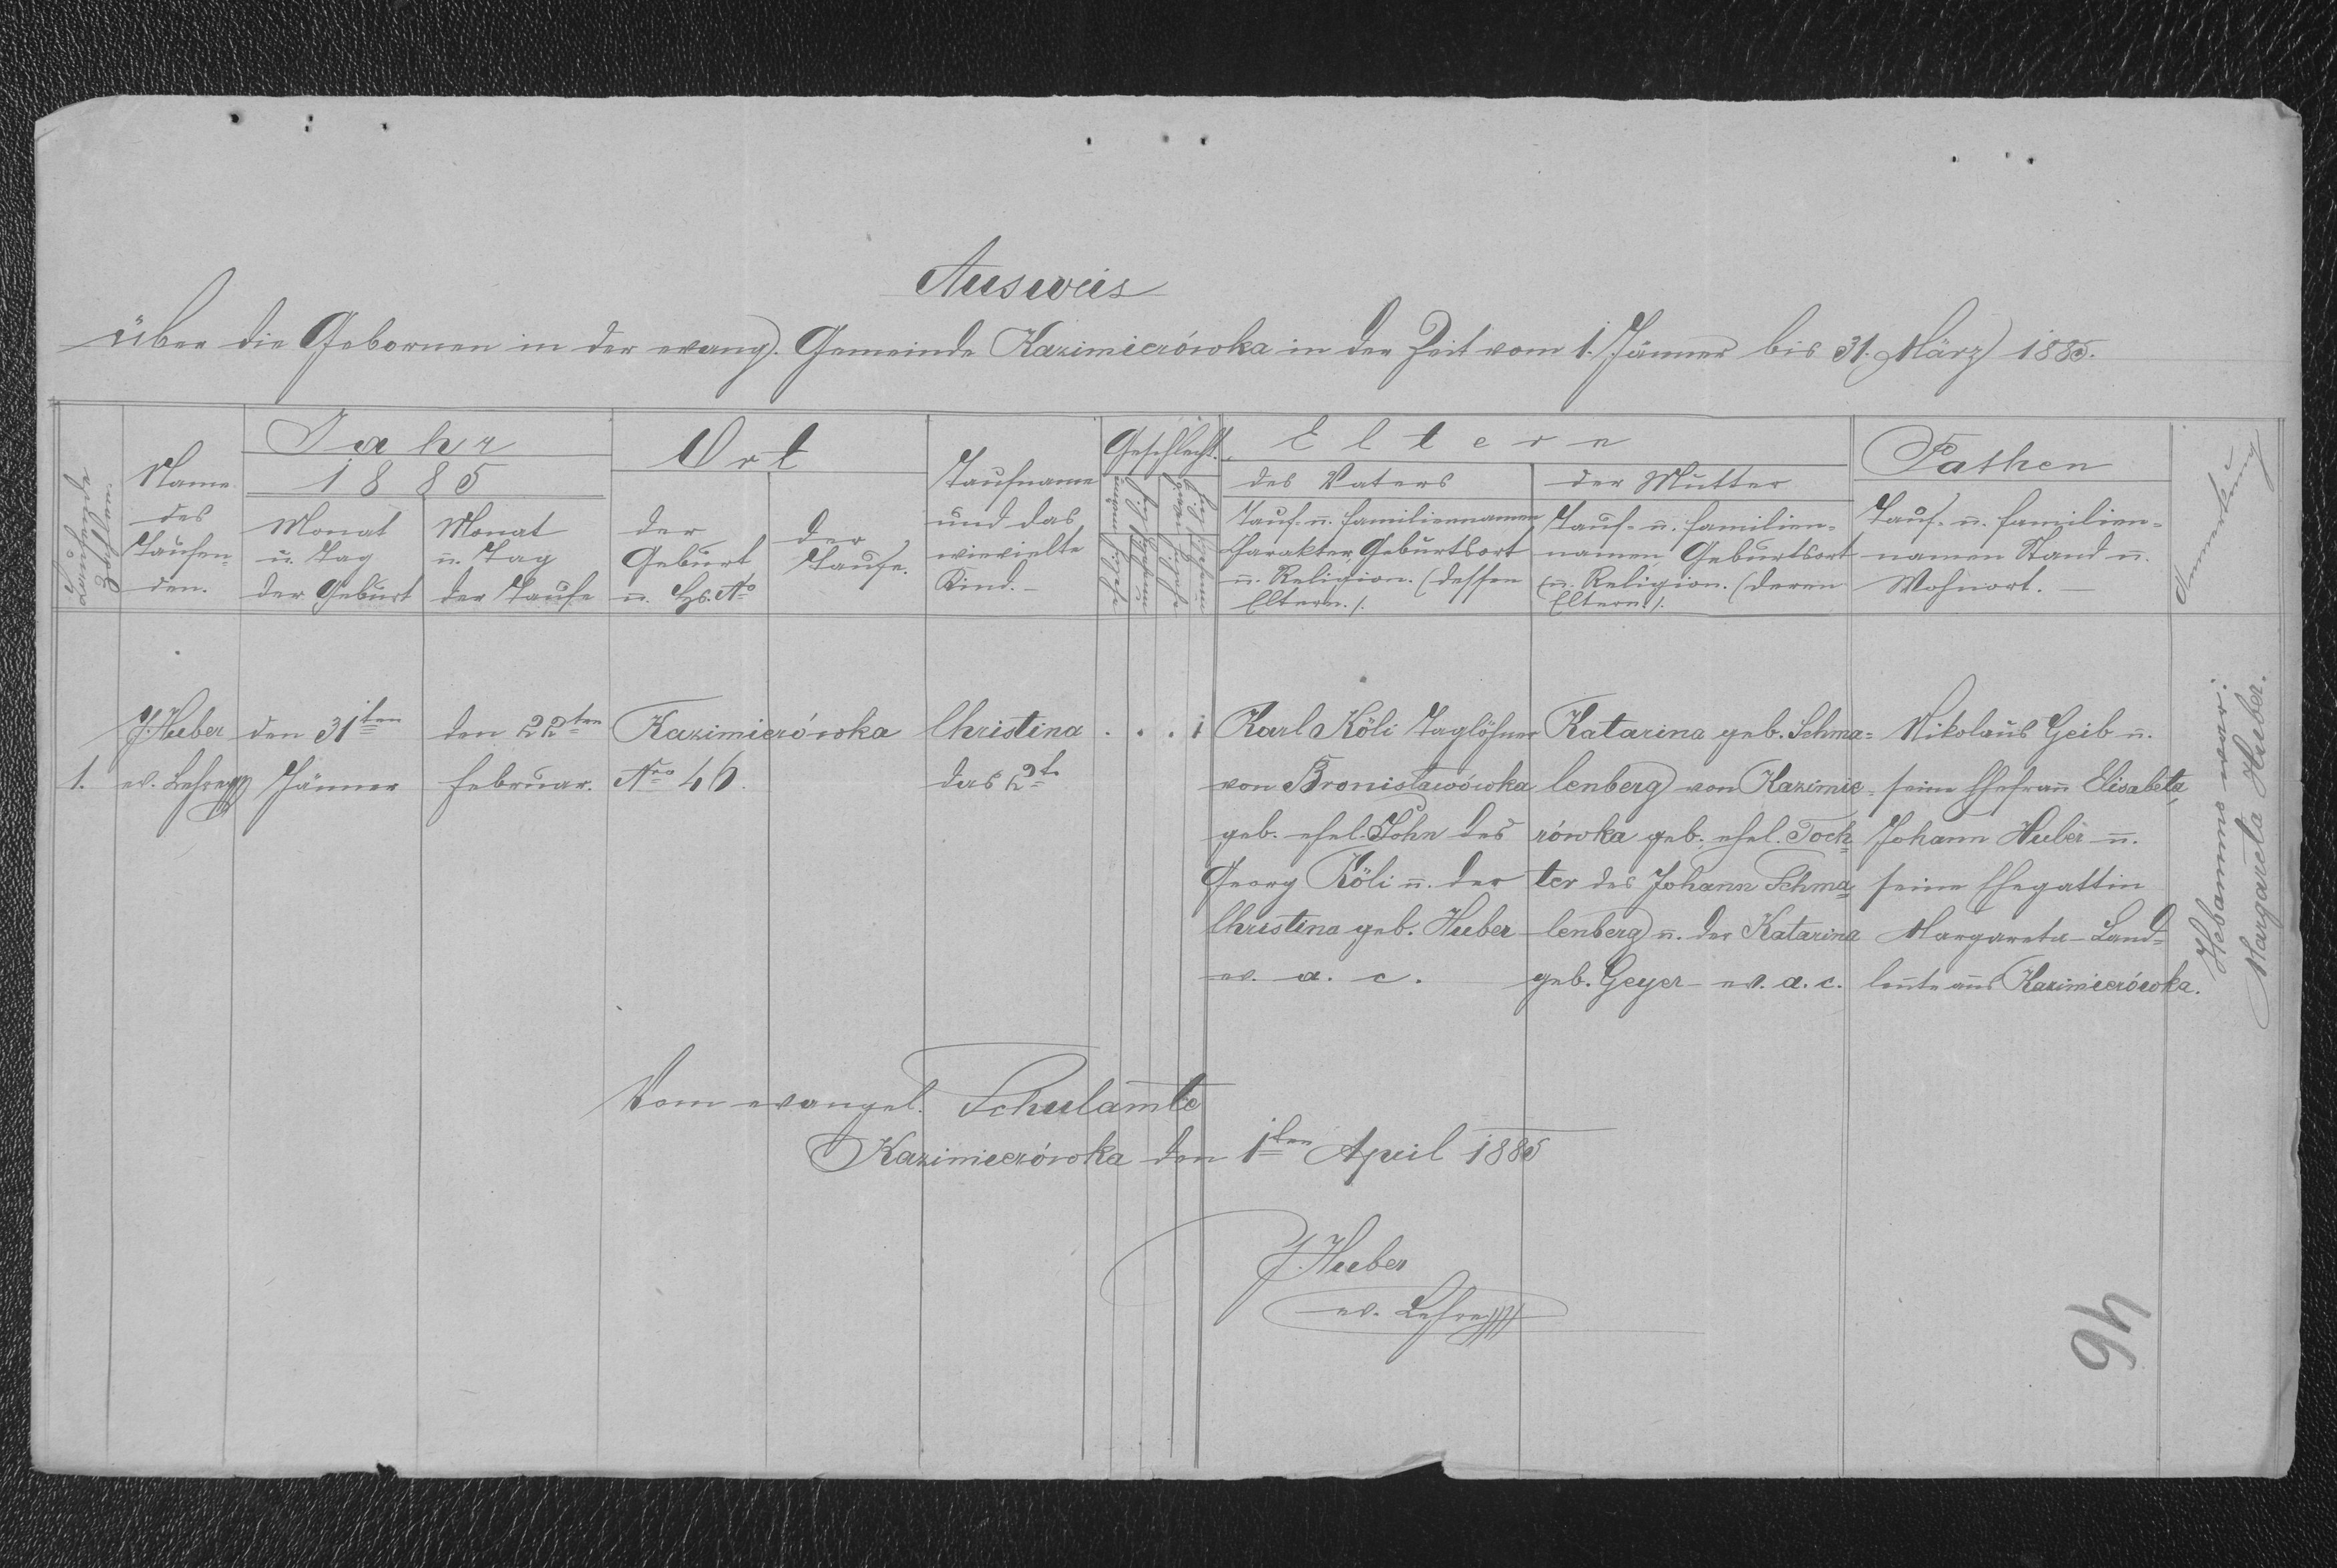 Ausweis
über die Gebornen in der evang. Gemeinde Kazimierówka in der Zeit vom 1. Jänner bis 31. März 1885.
Laufende Zahlen
Name
des
Taufen-
den.
Jahr
1885
Monat
u. Tag
der Geburt
Monat
u. Tag
der Taufe
Ort
der
Geburt
u. Hs. No
der
Taufe.
Taufname
und das
wievielte
Kind.-
Geschlecht.
Eltern
des Vaters
Tauf- u. Familiennamen
Charakter, Geburtsort
u. Religion. (dessen
Eltern./.
der Mutter
Tauf- u. Familien-
namen, Geburtsort
u. Religion. (deren
Eltern./.
Pathen
Tauf- u. Familien-
namen Stand u.
Wohnort.-
Anmerkung
1.
J. Huber
ev. Lehrer
den 31ten
Jänner
den 22ten
Februar.
Kazimierówka
Nro 46.
Christina
das 2te
. . . 1
Karl Köli Taglöhner
von Bronisławówka
geb. ehel. Sohn des
Georg Köli u. der
Christina geb. Huber
ev. a. c.
Katarina geb. Schma-
lenberg von Kazimie-
rówka geb. ehel. Toch-
ter des Johann Schma-
lenberg u. der Katarina
geb. Geyer - ev. a. c.
Nikolaus Geib u.
seine Ehefrau Elisabeta,
Johann Huber u.
seine Ehegattin
Margareta - Land-
leute aus Kazimierówka.
Hebamme war:
Margareta Huber.
Vom evangel. Schulamte
Kazimierówka den 1ten April 1885
J. Huber
ev. Lehrer
46